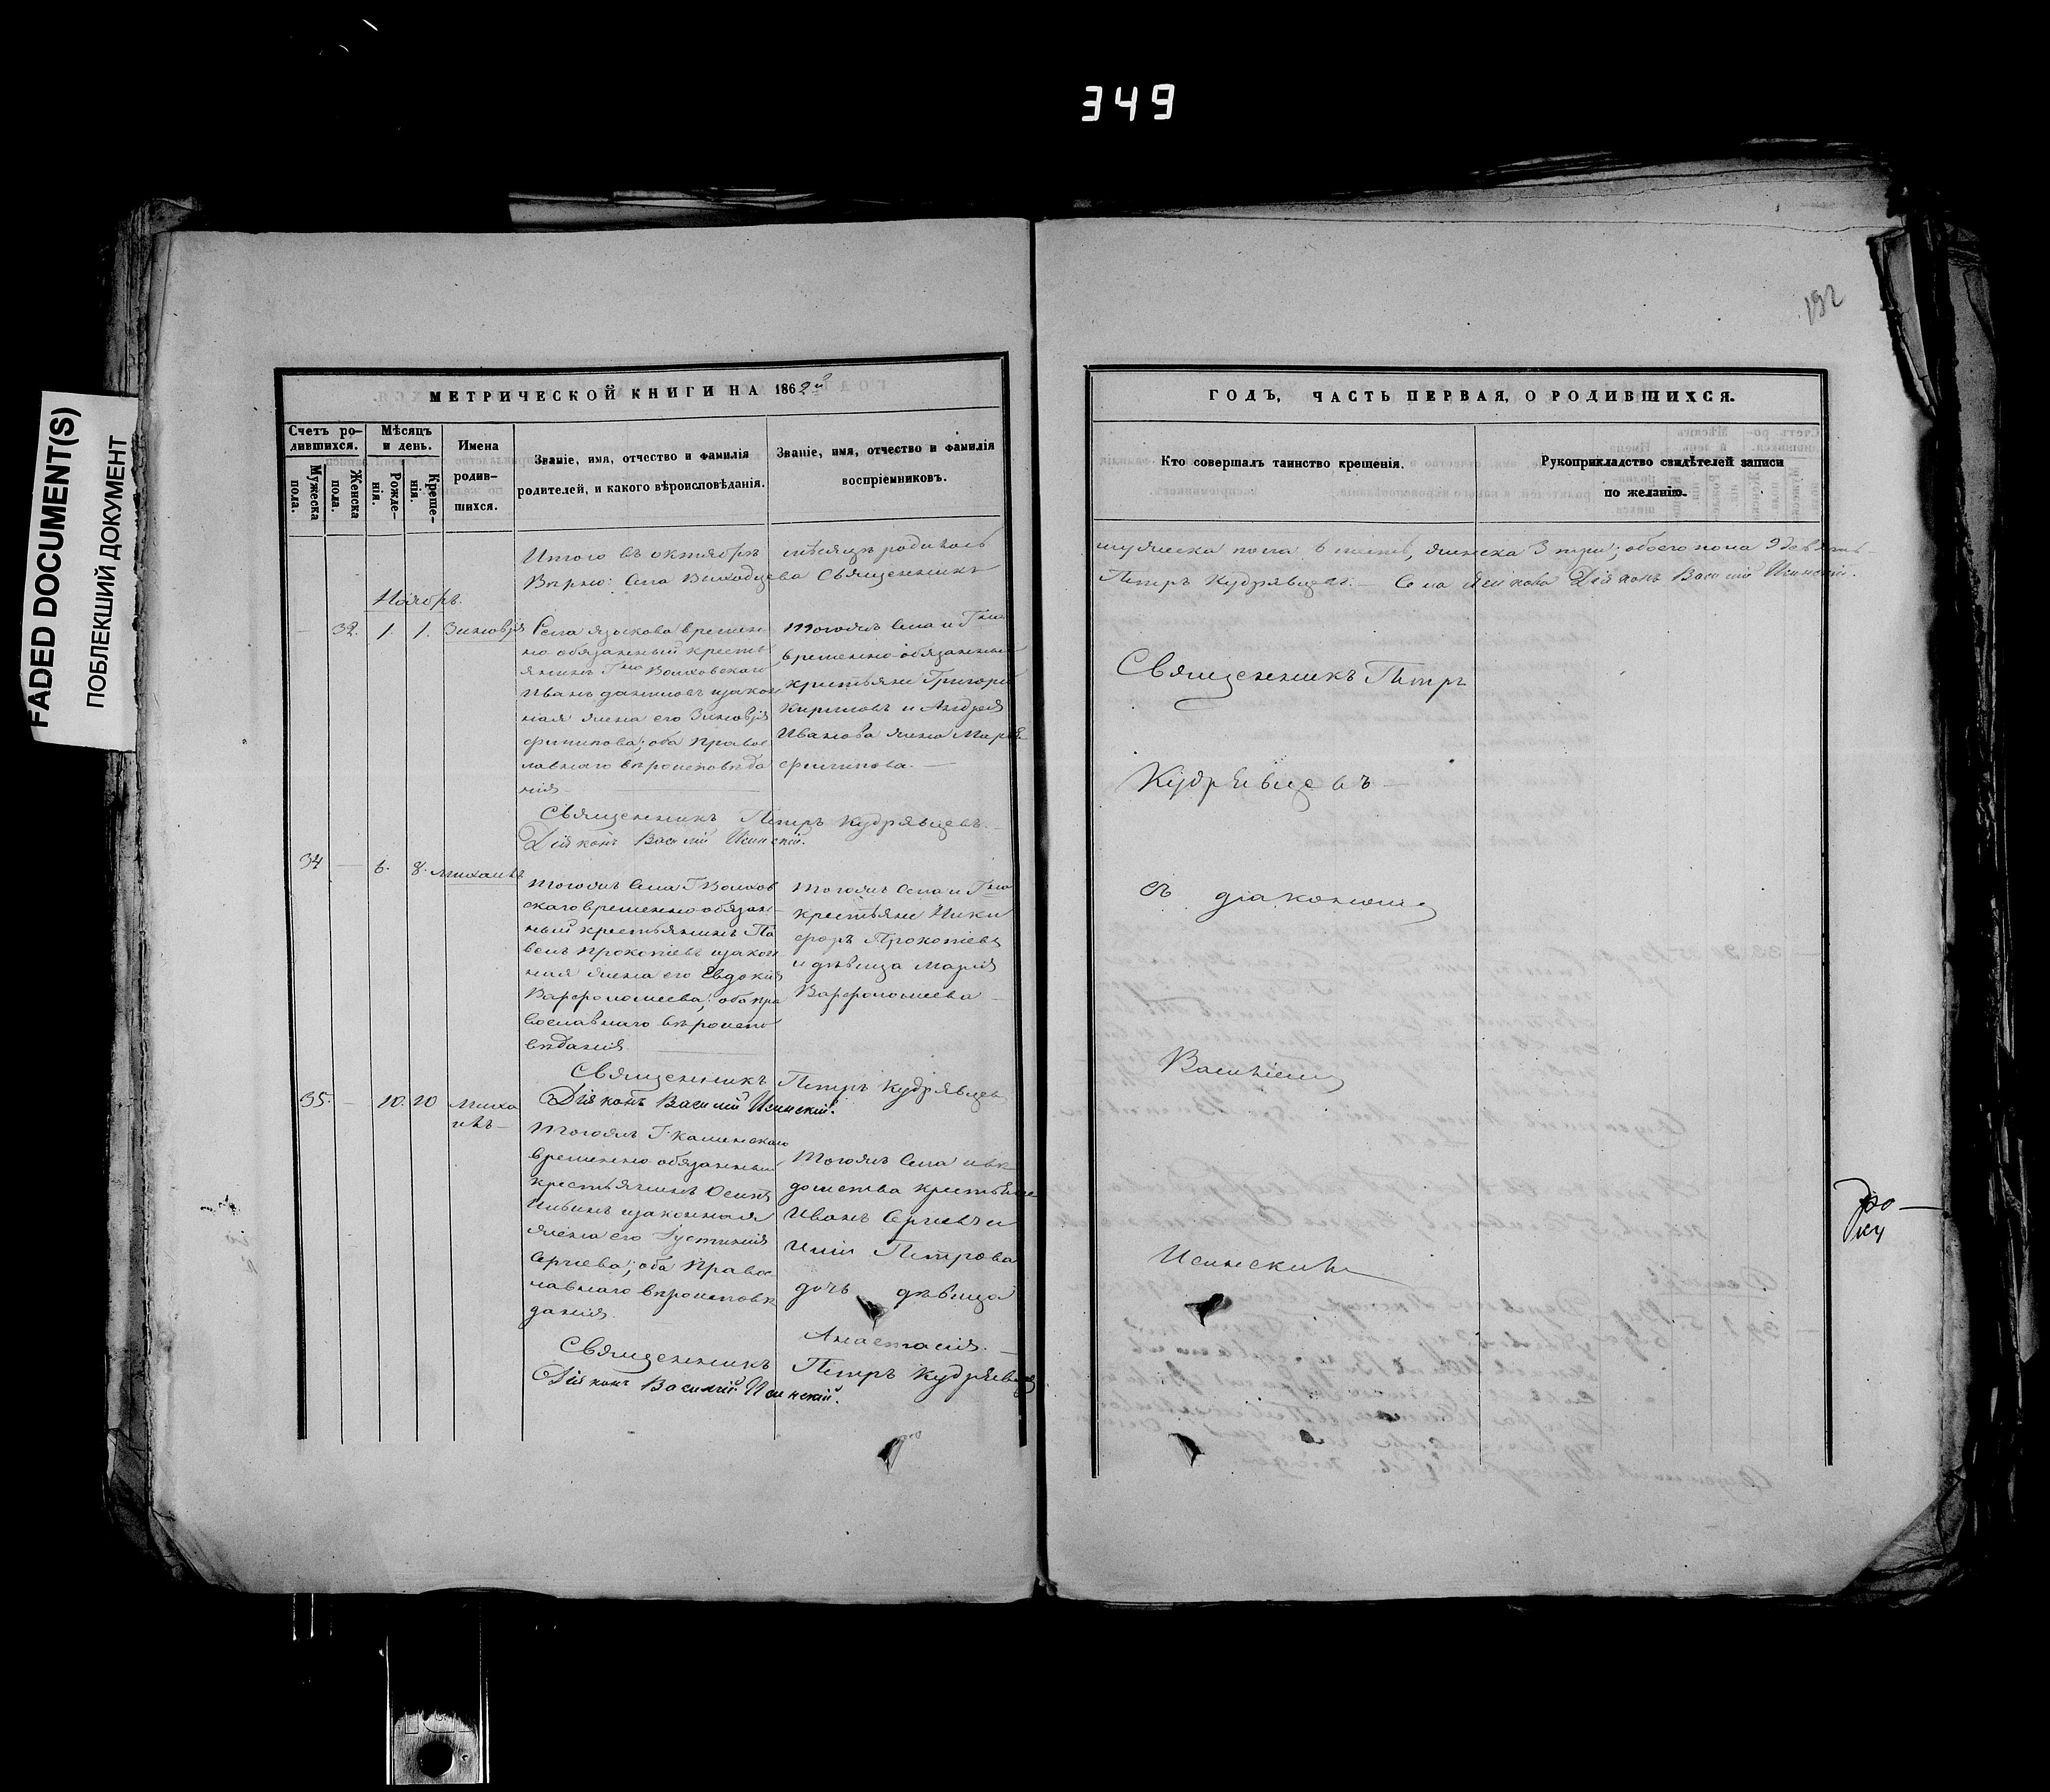 349
192
FADED DOCUMENT(S)
ПОБЛЕКШИЙ ДОКУМЕНТ
МЕТРИЧЕСКОЙ КНИГИ НА 1862й
Счетъ ро-
дившихся.
Мужеска
пола.
Женска
пола.
Мѣсяцъ
и день.
Рожде-
нія.
Креще-
нія.
Имена
родив-
шихся.
Званіе, имя, отчество и фамилія
родителей, и какого вѣроисповѣданія.
Званіе, имя, отчество и фамилія
воспріемниковъ.
Итого въ октябрѣ мѣсяцѣ родилось
Вѣрно: Села Священникъ
Ноябрь.
32. 1. 1. Зиновія
Села Языкова времен-
но обязанный кресть
янинъ Гна Волховскаго
Иванъ Даниловъ и закон
ная жена его Зиновія
Филипова; оба Правос
лавнаго вѣроисповѣда
нія
Тогожъ Села и Гна
временно-обязанный
крестьяне Григорій
Кириловъ и Андрея
Иванова жена Марѳа
Филипова. —
Священникъ Петръ Кудрявцевъ.
Діяконъ Василій Исинскій.
34 — 6. 8. Михаилъ
Тогожъ Села Г Волхов
скаго временно обязан-
ный крестьянинъ Па
велъ Прокопіевъ и закон
ная жена его Евдокія
Варфоломеева; оба пра
вославнаго вѣроиспо
вѣданія
Тогожъ Села и Гна
крестьяне Ники
форъ Прокопіевъ
и дѣвица Марія
Варфоломеева —
Священникъ Петръ Кудрявцевъ
Діяконъ Василій Исинскій.
35. — 10. 10 Миха
илъ —
Тогожъ Г. Каминскаго
временно обязанный
крестьянинъ Осипъ
Ильинъ и законная
жена его Іустинія
Сергіева; оба Правос
лавнаго вѣроисповѣ
данія
Тогожъ Села и вѣ
домства крестьяне
Иванъ Сергіевъ и
Иліи Петрова
дочь дѣвица
Анастасія. —
Священникъ Петръ Кудрявцевъ
Діяконъ Василій Исинскій.
ГОДЪ, ЧАСТЬ ПЕРВАЯ, О РОДИВШИХСЯ.
Кто совершалъ таинство крещенія.
Рукоприкладство свидѣтелей записи
по желанію.
мужеска пола 6 шесть, женска 3 три; обоего пола 9 девять —
Петръ Кудрявцевъ. — Села Языкова Діяконъ Василій Исинскій.
Священникъ Петръ
Кудрявцевъ —
съ діакономъ
Василіемъ
Исинскимъ